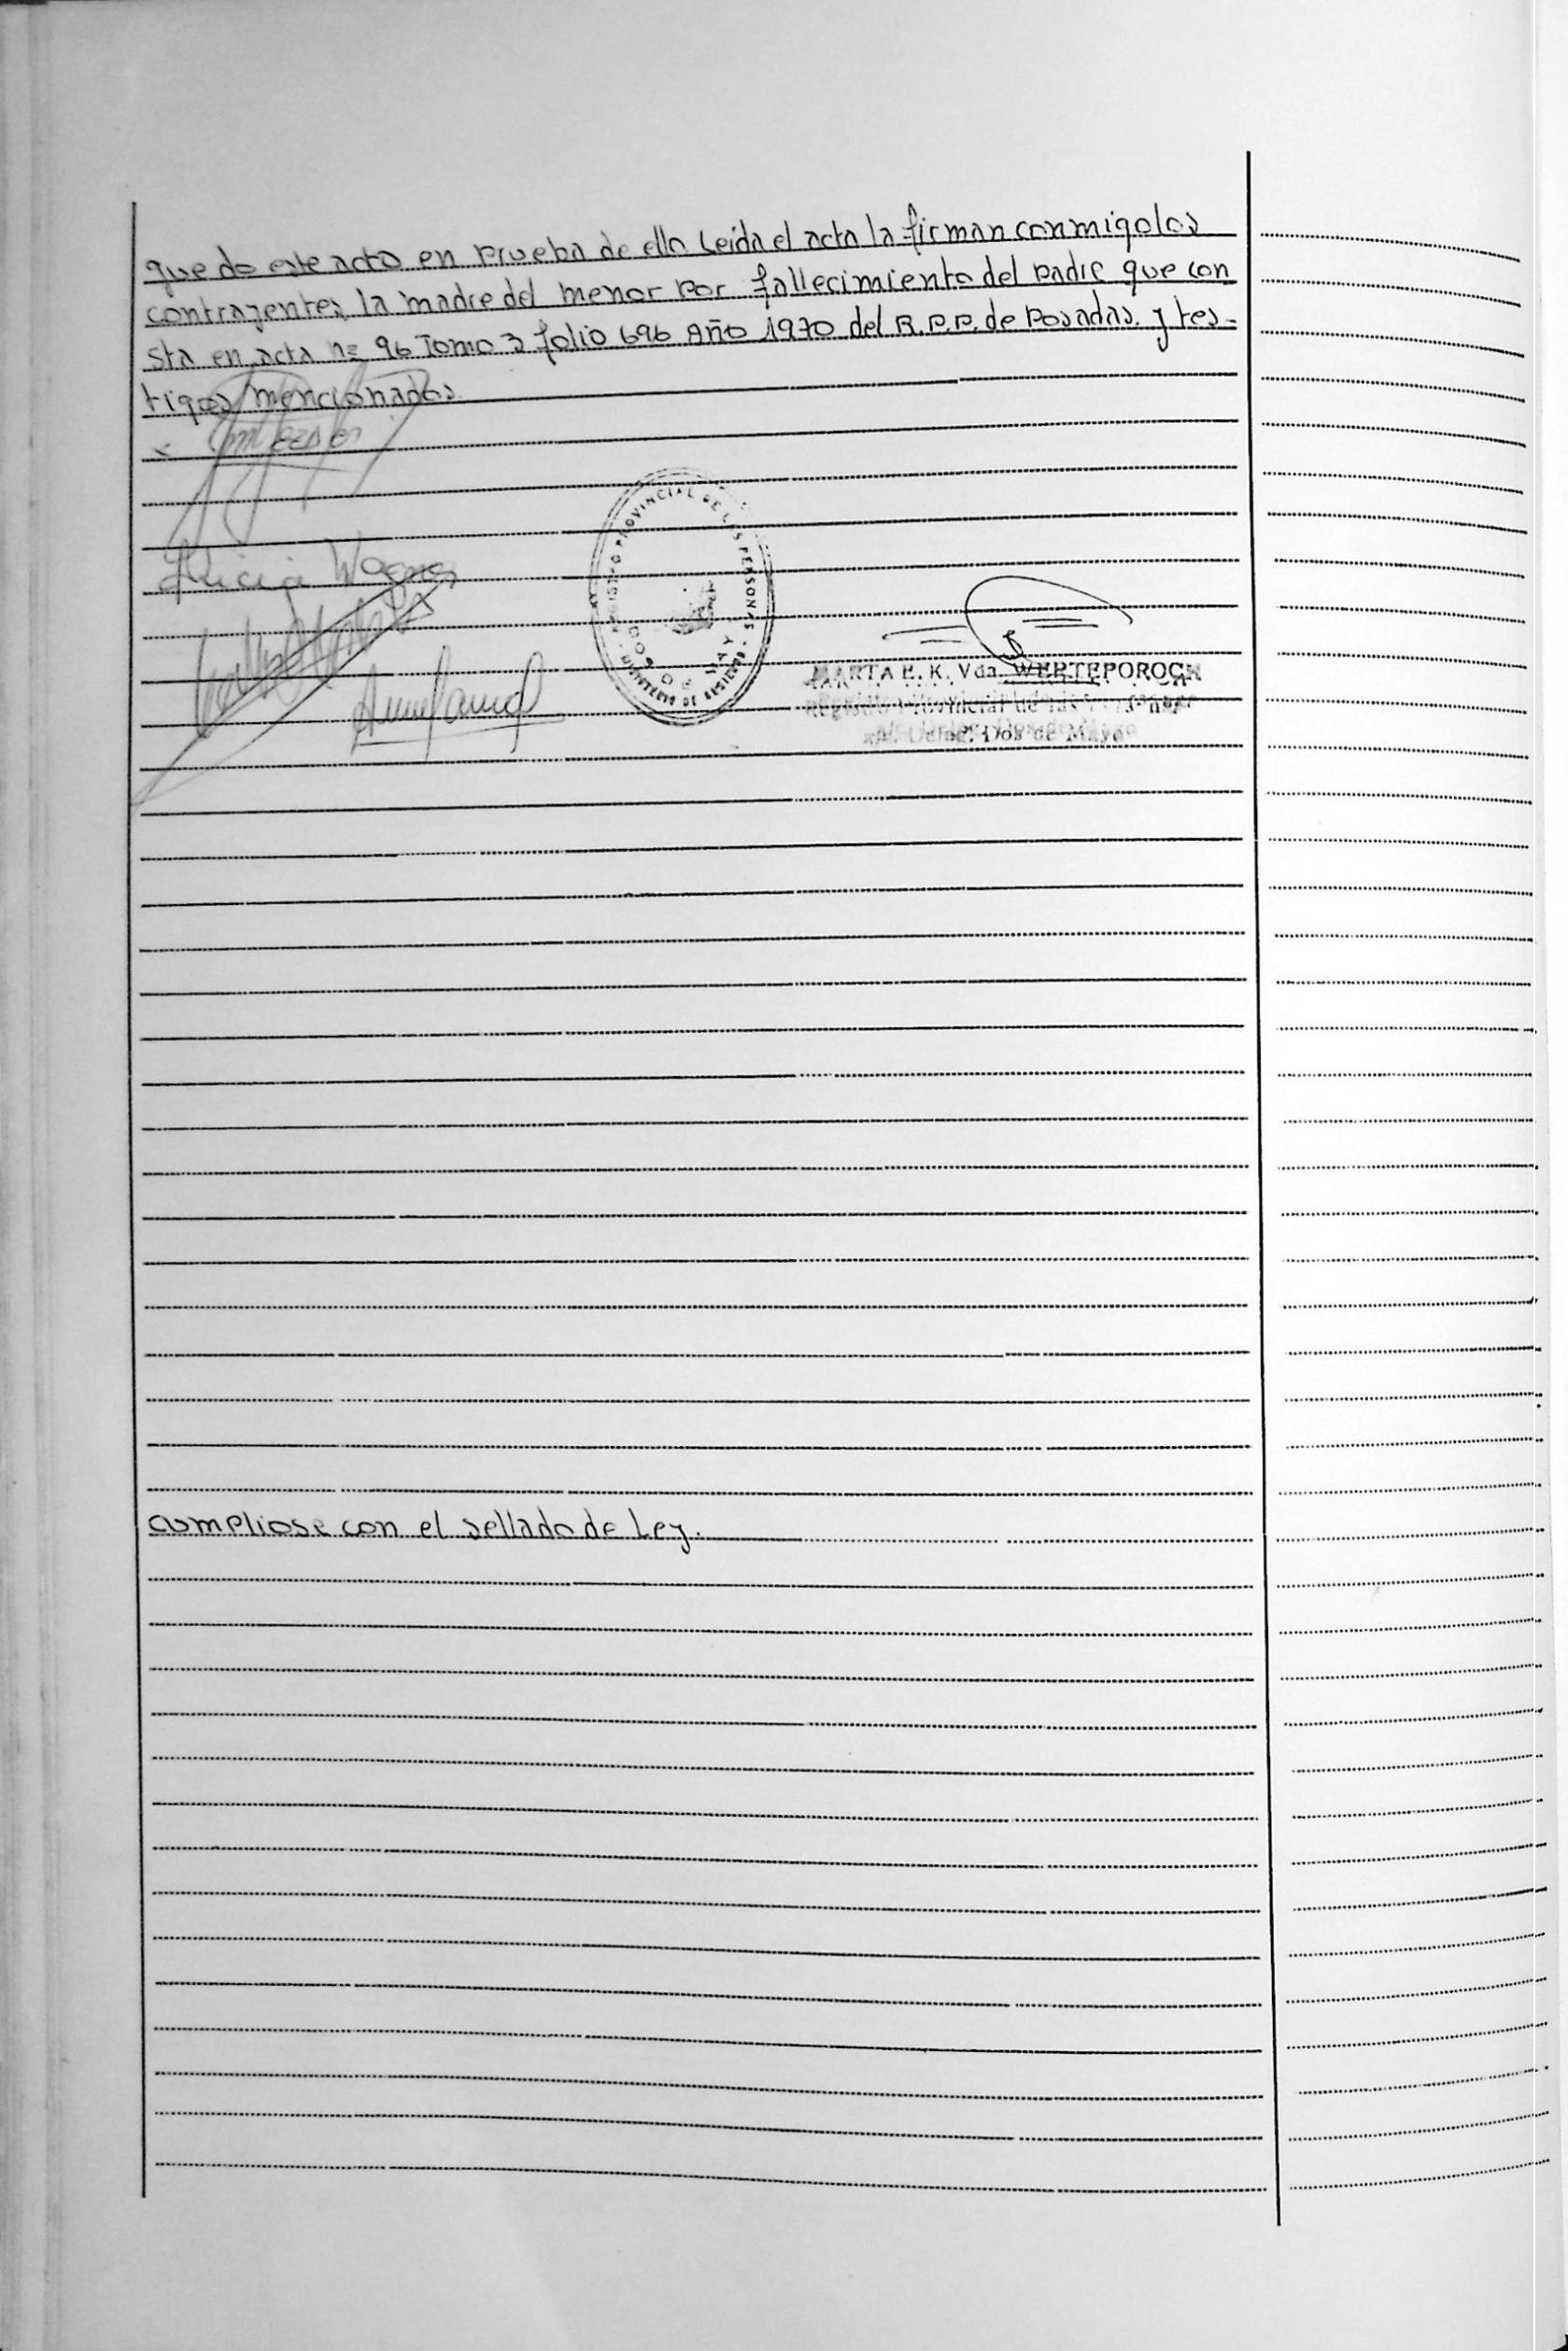 que do este acto en prueba de ello Leida el acta la firman conmigo los
contrayentes, la madre del menor por fallecimiento del padre que con
sta en acta nº 96 Tomo 3 folio 696 Año 1970 del R.P.P. de Posadas. y tes-
tigos mencionados.
Alicia Wagner
PROVINCIAL DE LAS PERSONAS
MARTA E. K. Vda. WERTEPOROCH
Registro Provincial de las
Deleg. Dos de Mayo
cumpliose con el sellado de Ley.